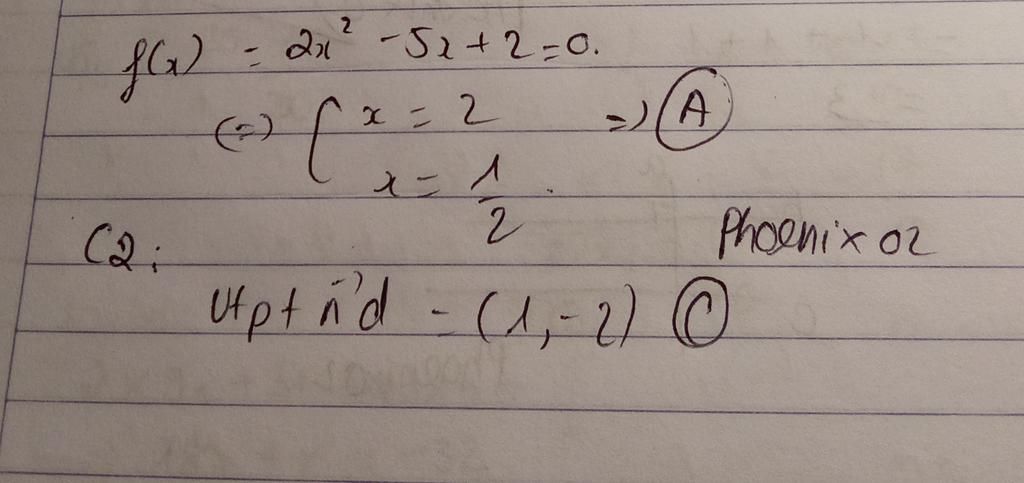 f(x) = 2x² - 5x + 2 = 0.
(=) { x = 2 => A
x = 1/2.
C2:
Phoenix 02
vtpt n⃗d = (1, -2) C